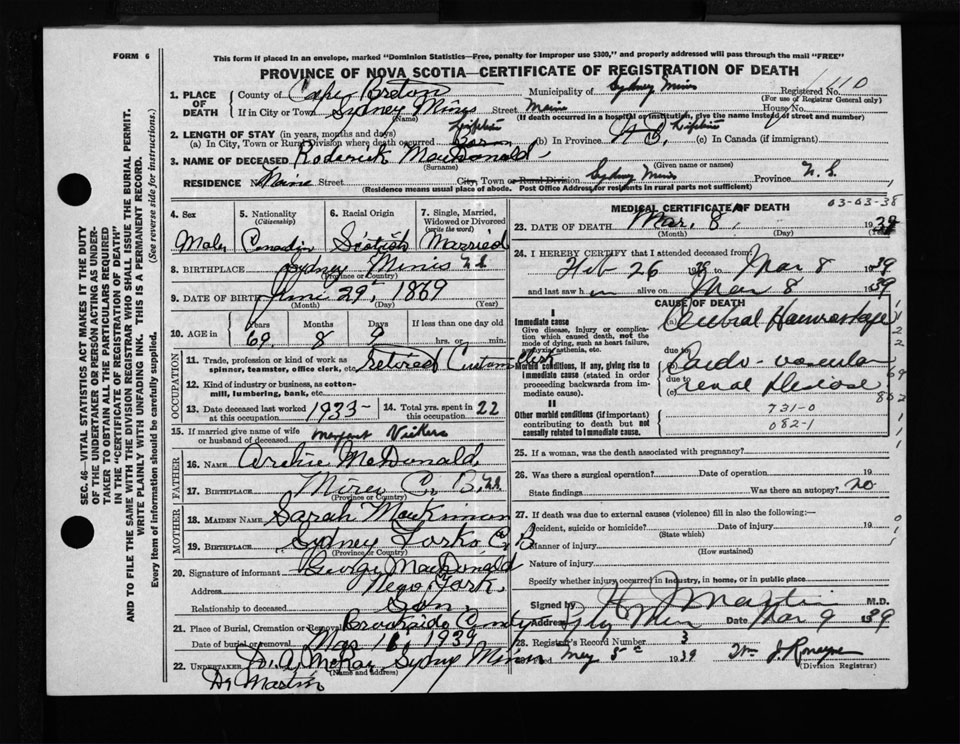 FORM 6
This form if placed in an envelope, marked "Dominion Statistics—Free, penalty for improper use $300," and properly addressed will pass through the mail "FREE"
PROVINCE OF NOVA SCOTIA—CERTIFICATE OF REGISTRATION OF DEATH
1. PLACE OF DEATH County of Cape Breton Municipality of Sydney Mines Registered No. 110
(For use of Registrar General only)
If in City or Town Sydney Mines Street Main House No.
(Name) (If death occurred in a hospital or institution, give the name instead of street and number)
2. LENGTH OF STAY (in years, months and days)
(a) In City, Town or Rural Division where death occurred Lifetime Born (b) In Province N.S. Lifetime (c) In Canada (if immigrant)
3. NAME OF DECEASED Roderick MacDonald
(Surname) (Given name or names)
RESIDENCE N Maine Street City, Town or Rural Division Sydney Mines Province N.S.
(Residence means usual place of abode. Post Office Address for residents in rural parts not sufficient)
4. Sex Male
5. Nationality (Citizenship) Canadian
6. Racial Origin Scotish
7. Single, Married, Widowed or Divorced (write the word) Married
8. BIRTHPLACE Sydney Mines N.S.
(Province or Country)
9. DATE OF BIRTH June 29, 1869
(Month) (Day) (Year)
10. AGE in Years 69 Months 8 Days 9 If less than one day old
hrs. or min.
OCCUPATION
11. Trade, profession or kind of work as spinner, teamster, office clerk, etc. Retired Customs Clerk
12. Kind of industry or business, as cotton-mill, lumbering, bank, etc
13. Date deceased last worked at this occupation 1933-
14. Total yrs. spent in this occupation 22
15. If married give name of wife or husband of deceased Margaret Vickers
FATHER
16. NAME Archie McDonald
17. BIRTHPLACE Mira C. B. N.S.
(Province or Country)
MOTHER
18. MAIDEN NAME Sarah MacKinnon
19. BIRTHPLACE Sydney Forks C B
(Province or Country)
20. Signature of informant George MacDonald
Address New York
Relationship to deceased Son
21. Place of Burial, Cremation or Removal Brookside Cemty
Date of burial or removal Mar 1939
22. UNDERTAKER A McKay Sydney Mines
(Name and address)
Dr Martin
MEDICAL CERTIFICATE OF DEATH 03-03-38
23. DATE OF DEATH Mar, 8, 1939
(Month) (Day) (Year)
24. I HEREBY CERTIFY that I attended deceased from:
Feb 26 1939 to Mar 8 1939
and last saw him alive on Mar 8 1939
CAUSE OF DEATH
I
Immediate cause
Give disease, injury or complication which caused death, not the mode of dying, such as heart failure, asphyxia, asthenia, etc.
(a) Cerebral Haemorrhage
due to
Morbid conditions, if any, giving rise to immediate cause (stated in order proceeding backwards from immediate cause).
Cardio-vascular
due to
(c) renal disease
II
Other morbid conditions (if important) contributing to death but not causally related to immediate cause.
731-0
082-1
25. If a woman, was the death associated with pregnancy?
26. Was there a surgical operation? Date of operation 19
State findings Was there an autopsy? no
27. If death was due to external causes (violence) fill in also the following:—
Accident, suicide or homicide? Date of injury 19
(State which)
Manner of injury
(How sustained)
Nature of injury
Specify whether injury occurred in industry, in home, or in public place
Signed by H J Martin M.D.
Address Syd Mines Date Mar 9 1939
28. Registrar's Record Number 3
Filed May 5 1939 Wm J. Ronayne
(Division Registrar)
SEC. 46—VITAL STATISTICS ACT MAKES IT THE DUTY
OF THE UNDERTAKER OR PERSON ACTING AS UNDERTAKER TO OBTAIN ALL THE PARTICULARS REQUIRED
IN THE "CERTIFICATE OF REGISTRATION OF DEATH"
AND TO FILE THE SAME WITH THE DIVISION REGISTRAR WHO SHALL ISSUE THE BURIAL PERMIT.
WRITE PLAINLY WITH UNFADING INK. THIS IS A PERMANENT RECORD.
Every item of information should be carefully supplied. (See reverse side for instructions.)